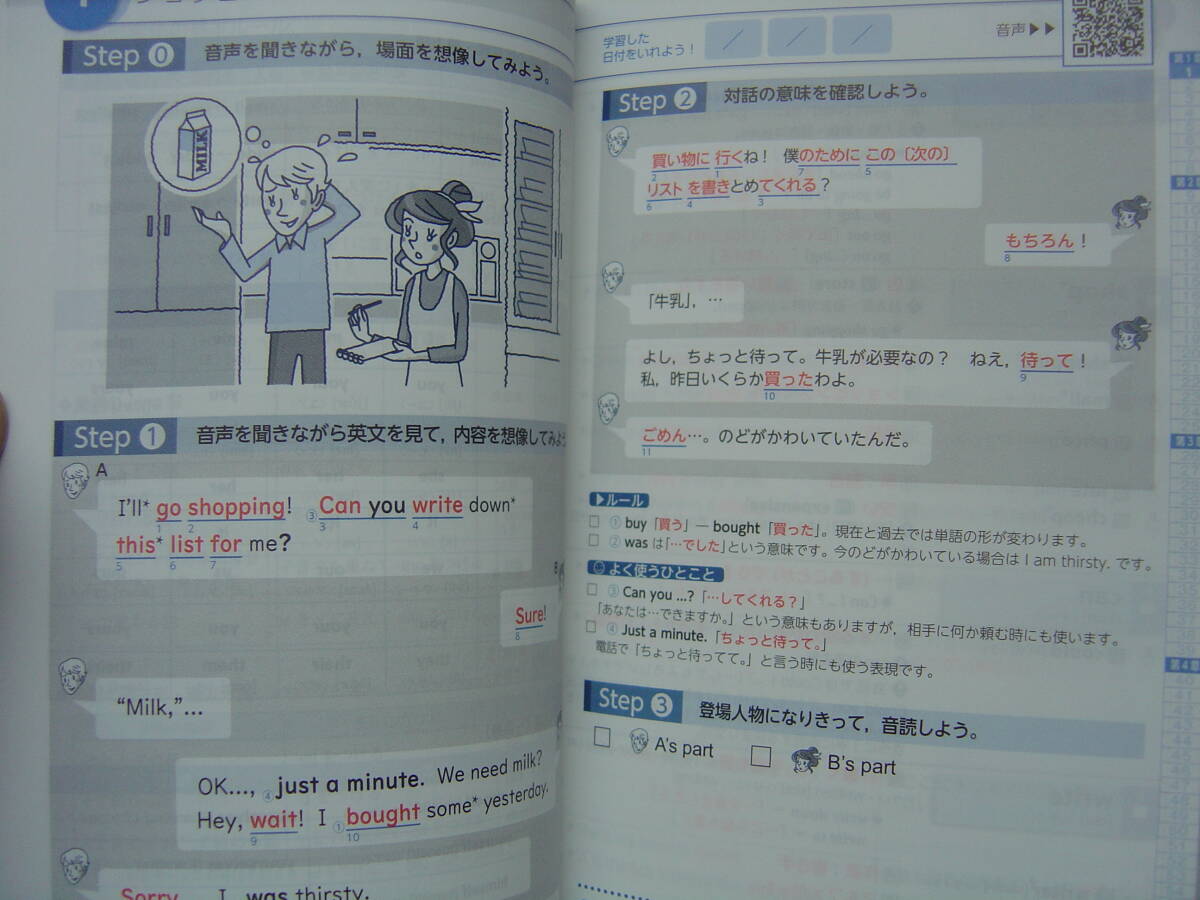 Step 0 音声を聞きながら，場面を想像してみよう。
MILK
Step 1 音声を聞きながら英文を見て，内容を想像してみよ
A
I'll* go shopping! ③Can you write down*
1 2 3 4
this* list for me?
5 6 7
B
Sure!
8
“Milk,”...
OK..., ④just a minute. We need milk?
Hey, wait! I ①bought some* yesterday.
9 10
Sorry I was thirsty.
学習した
日付をいれよう！
／ ／ ／
音声▶▶
Step 2 対話の意味を確認しよう。
買い物に 行くね！ 僕のために この〔次の〕
2 1 7 5
リスト を書きとめてくれる？
6 4 3
もちろん！
8
「牛乳」，…
よし，ちょっと待って。牛乳が必要なの？ ねえ，待って！
9
私，昨日いくらか買ったわよ。
10
ごめん…。のどがかわいていたんだ。
11
▶ルール
□ ① buy「買う」— bought「買った」。現在と過去では単語の形が変わります。
□ ② was は「…でした」という意味です。今のどがかわいている場合は I am thirsty. です。
よく使うひとこと
□ ③ Can you ...?「…してくれる？」
「あなたは…できますか。」という意味もありますが，相手に何か頼む時にも使います。
□ ④ Just a minute.「ちょっと待って。」
電話で「ちょっと待ってて。」と言う時にも使う表現です。
Step 3 登場人物になりきって，音読しよう。
□ A's part □ B's part
第1
1
第2
第3
第4